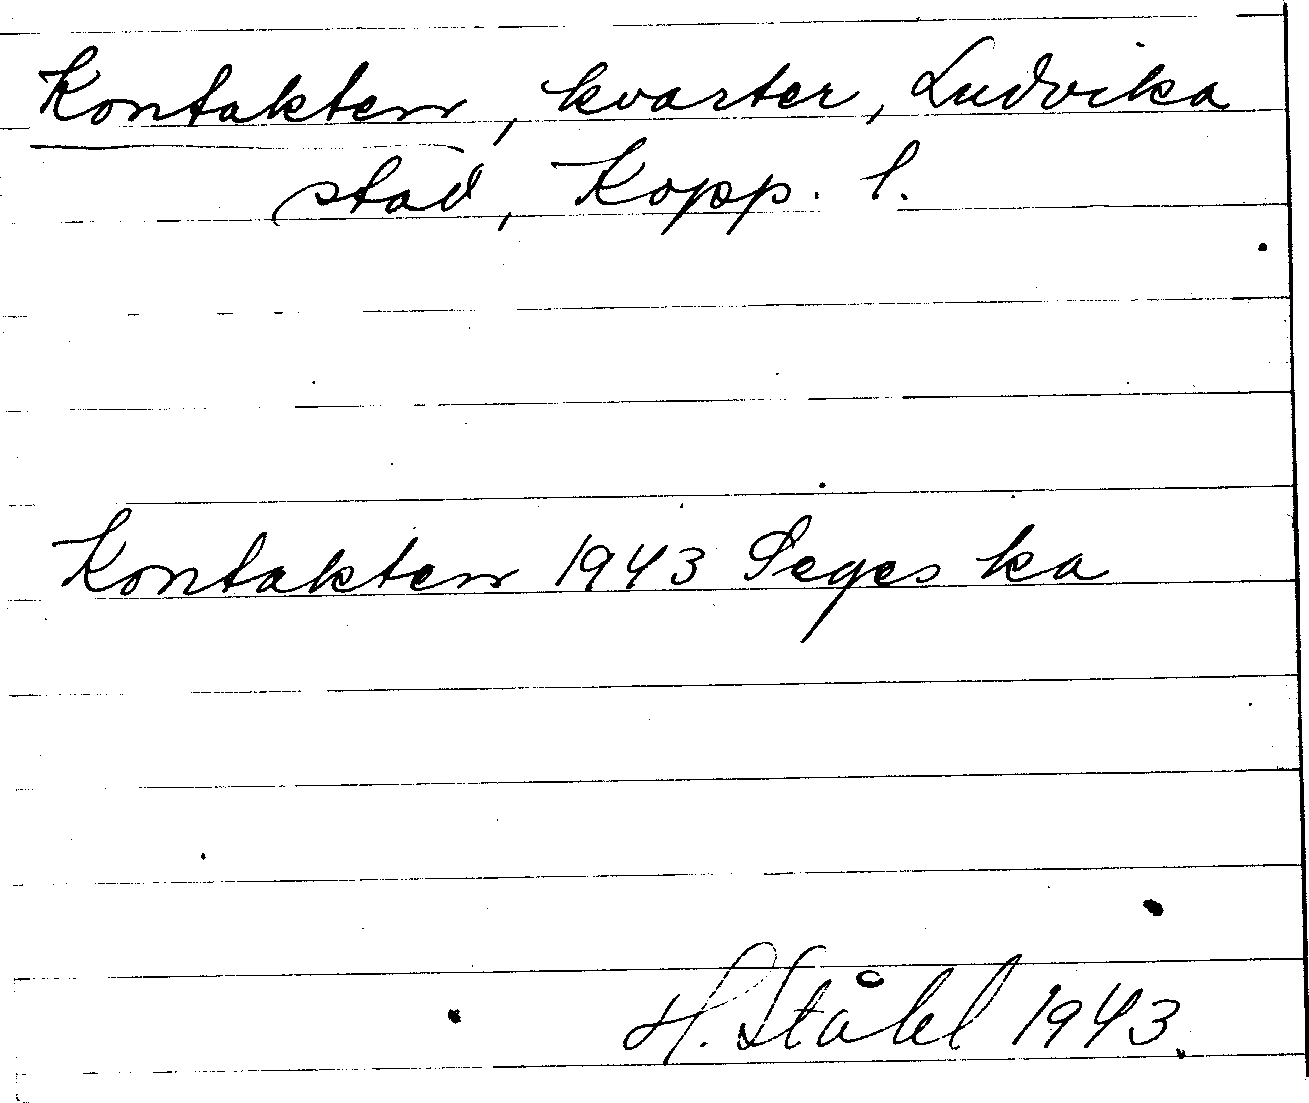 Kontakten, kvarter, Ludvika
stad, Kopp. l.
Kontakten 1943 Seges ka
H. Ståhl 1943.